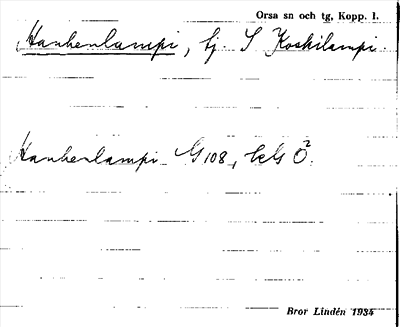 Orsa sn och tg, Kopp. l.
Hanhenlampi, tj. S Koskilampi.
Hanhenlampi G 108, ekG Ö².
Bror Lindén 1934